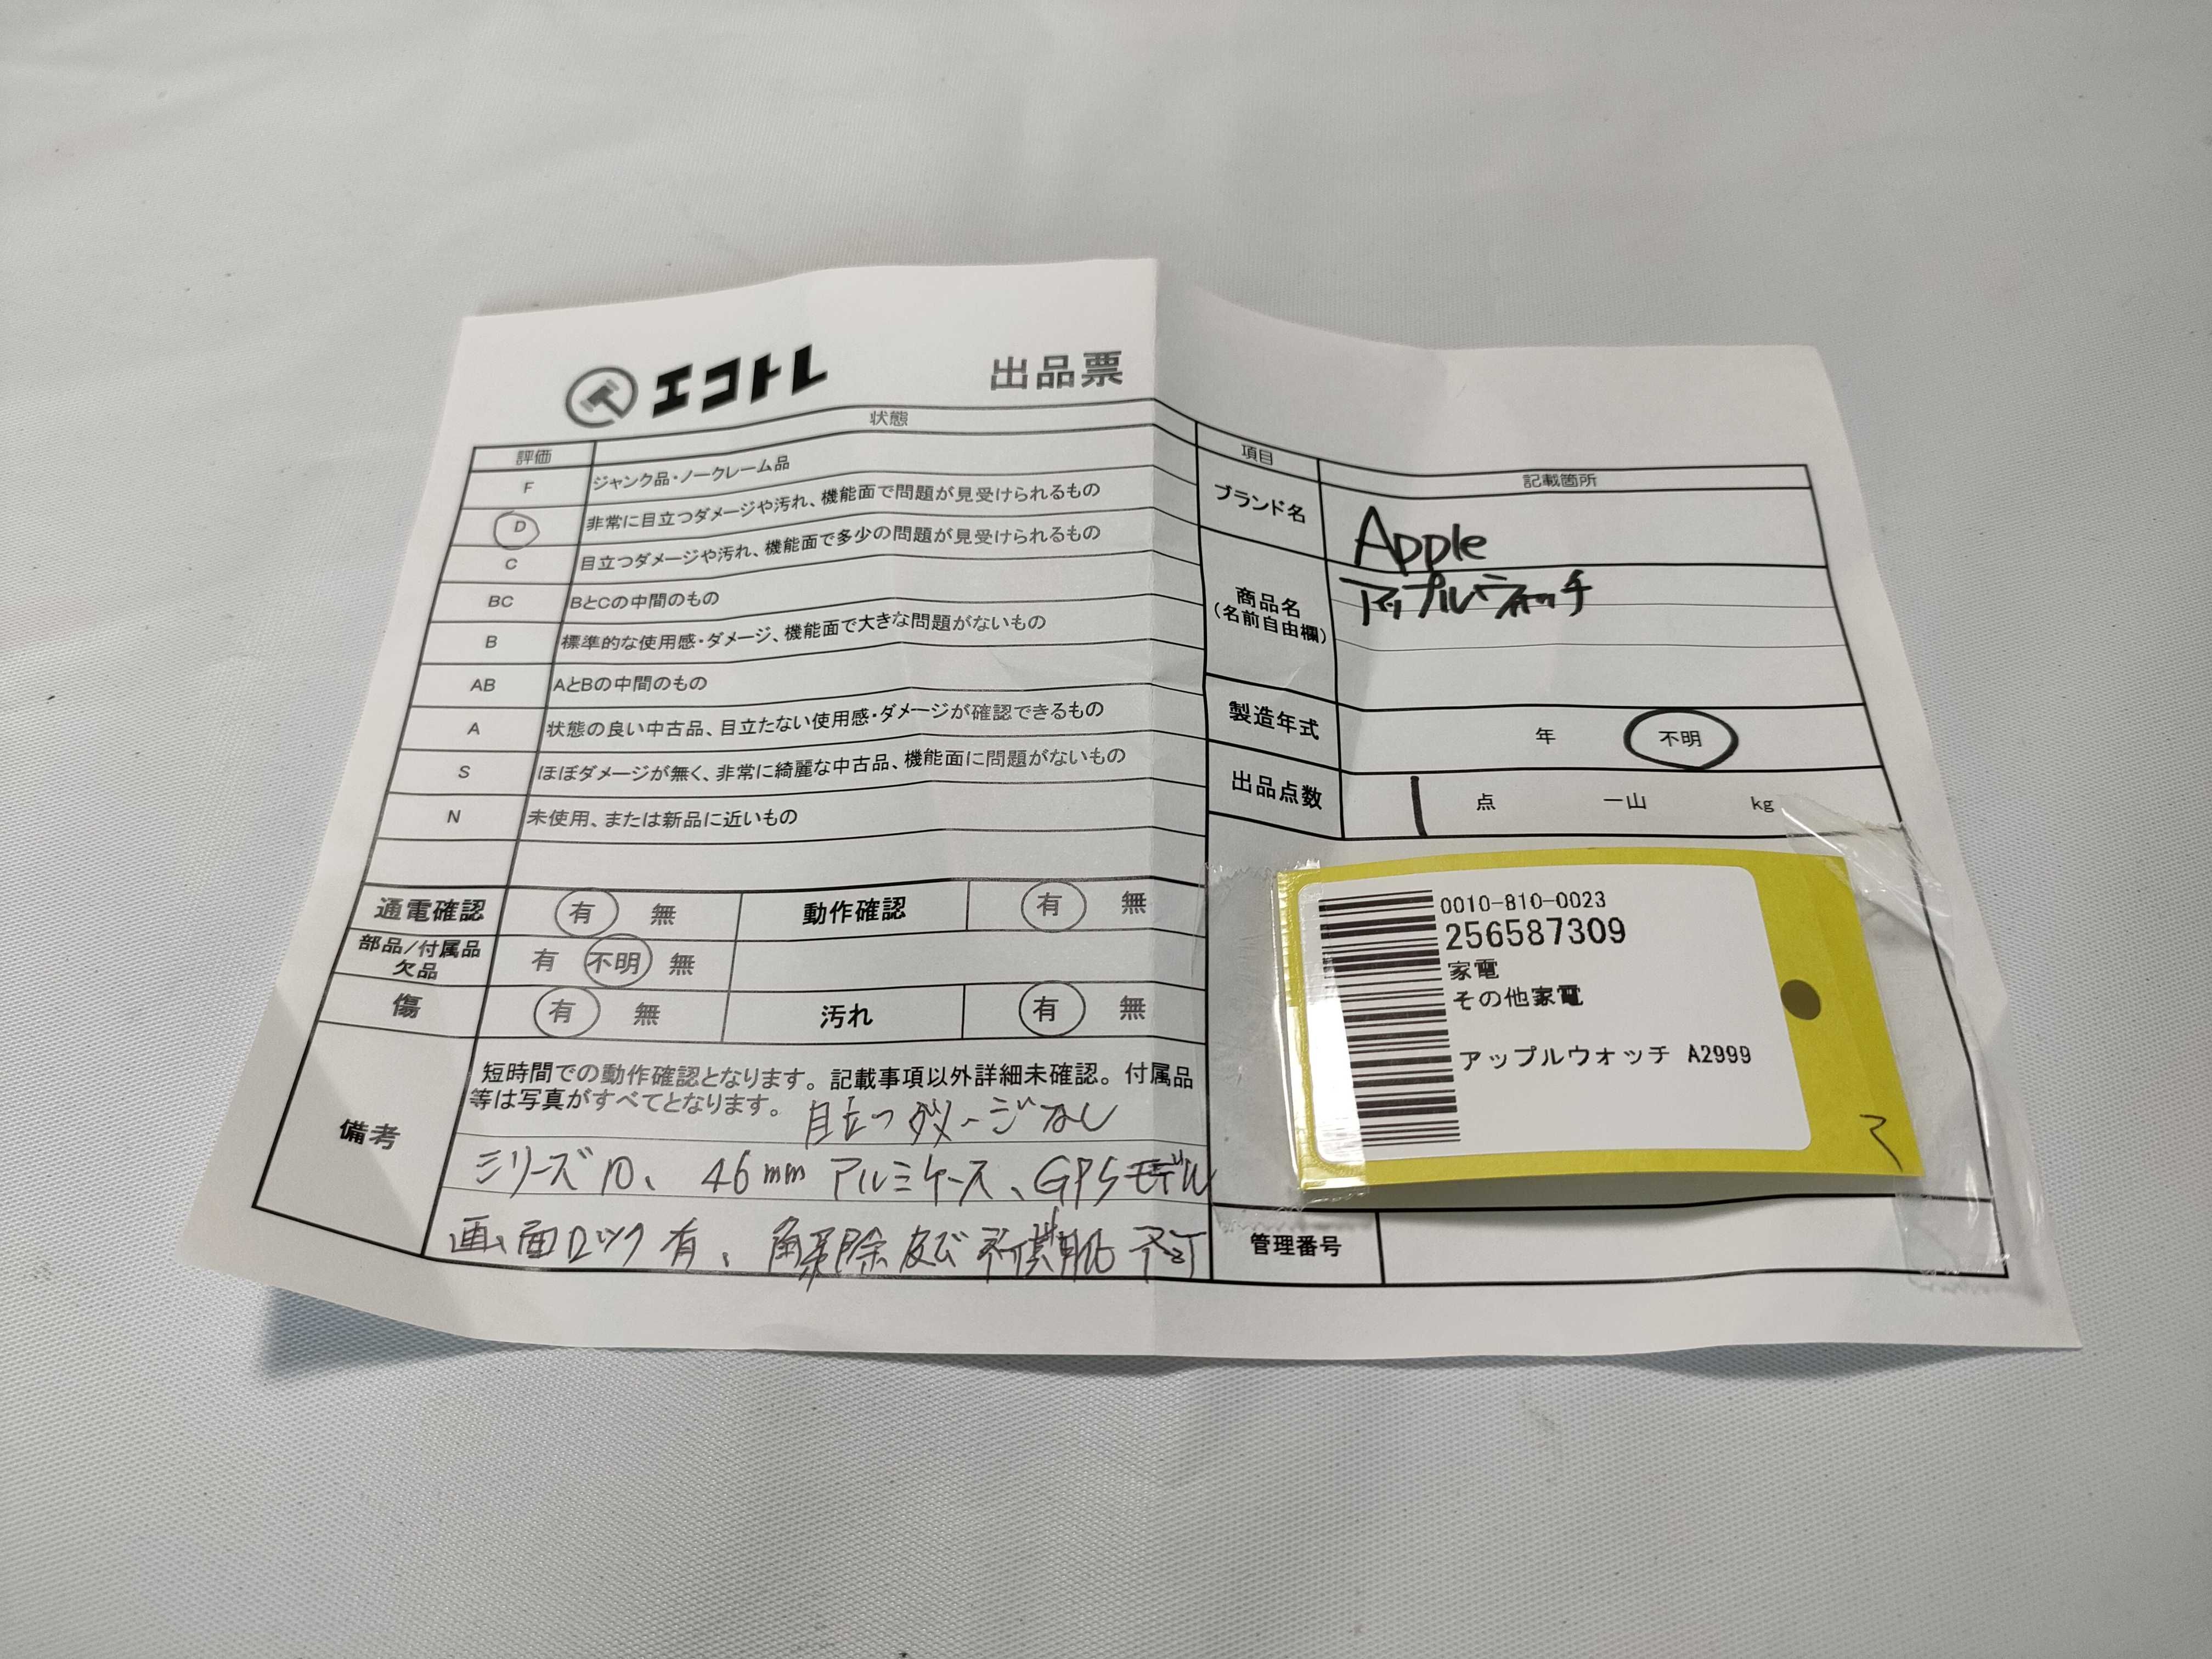 エコトレ 出品票
評価 状態
F ジャンク品・ノークレーム品
D 非常に目立つダメージや汚れ、機能面で問題が見受けられるもの
C 目立つダメージや汚れ、機能面で多少の問題が見受けられるもの
BC BとCの中間のもの
B 標準的な使用感・ダメージ、機能面で大きな問題がないもの
AB AとBの中間のもの
A 状態の良い中古品、目立たない使用感・ダメージが確認できるもの
S ほぼダメージが無く、非常に綺麗な中古品、機能面に問題がないもの
N 未使用、または新品に近いもの
通電確認 有 無 動作確認 有 無
部品/付属品
欠品 有 不明 無
傷 有 無 汚れ 有 無
備考
短時間での動作確認となります。記載事項以外詳細未確認。付属品
等は写真がすべてとなります。 目立つダメージなし
シリーズ10、46mm アルミケース、GPSモデル
画面ロック有、解除及び初期化不可
項目 記載箇所
ブランド名 Apple
商品名
(名前自由欄) アップルウォッチ
製造年式 年 不明
出品点数 1 点 一山 kg
0010-810-0023
256587309
家電
その他家電
アップルウォッチ A2999
管理番号